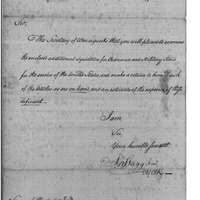 Sir,
The Secretary of War requests that you will please to examine
the enclosed additional requisition for Ordnance and Military Stores
for the service of the United States and make a return to him of such
of the articles as are on hand, and an estimate of the expense of the
deficient.
I am
Sir
Your humble servant